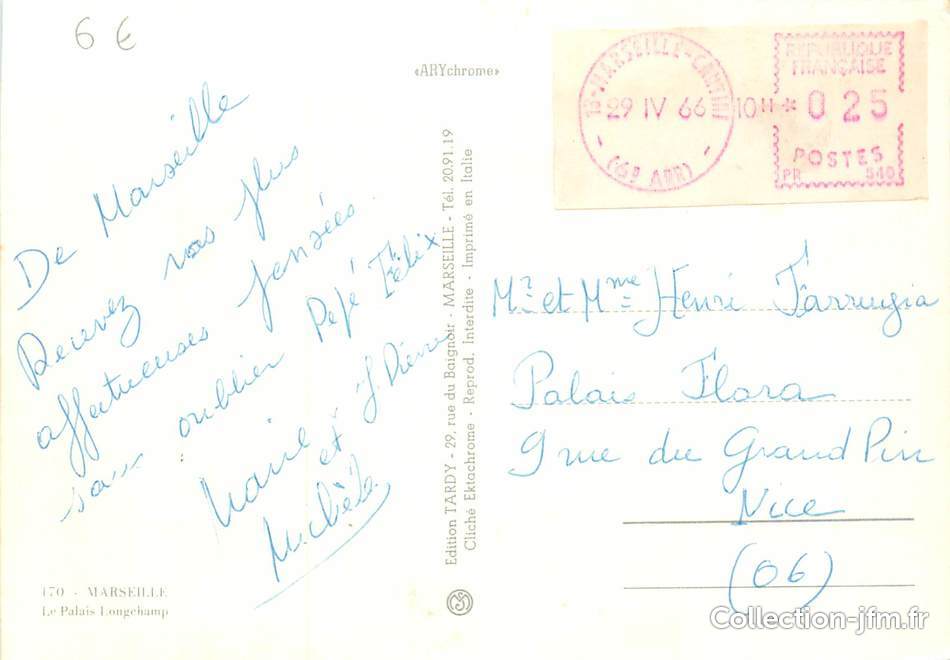 6 €
«ARYchrome»
De Marseille
Recevez nos plus
affectueuses pensées.
sans oublier Pépé Félix
Marie J. Pierre
et
Michèle
170 - MARSEILLE
Le Palais Longchamp
Edition TARDY - 29, rue du Baignoir - MARSEILLE - Tél. 20.91.19
Cliché Ektachrome - Reprod. Interdite - Imprimé en Italie
13-MARSEILLE-CANTINI
29 IV 66 10H *
(6e ARR)
REPUBLIQUE
FRANÇAISE
025
POSTES
PR 540
Mr et Mme Henri Farrugia
Palais Flora
9 rue du Grand Pin
Nice
(06)
Collection-jfm.fr